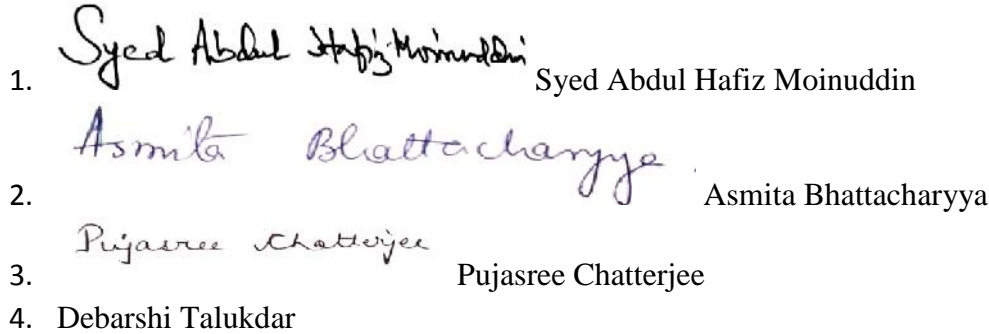 Syed Abdul Hafiz Moinuddin
1. Syed Abdul Hafiz Moinuddin
Asmita Bhattacharyya
2. Asmita Bhattacharyya
Pujasree Chatterjee
3. Pujasree Chatterjee
4. Debarshi Talukdar